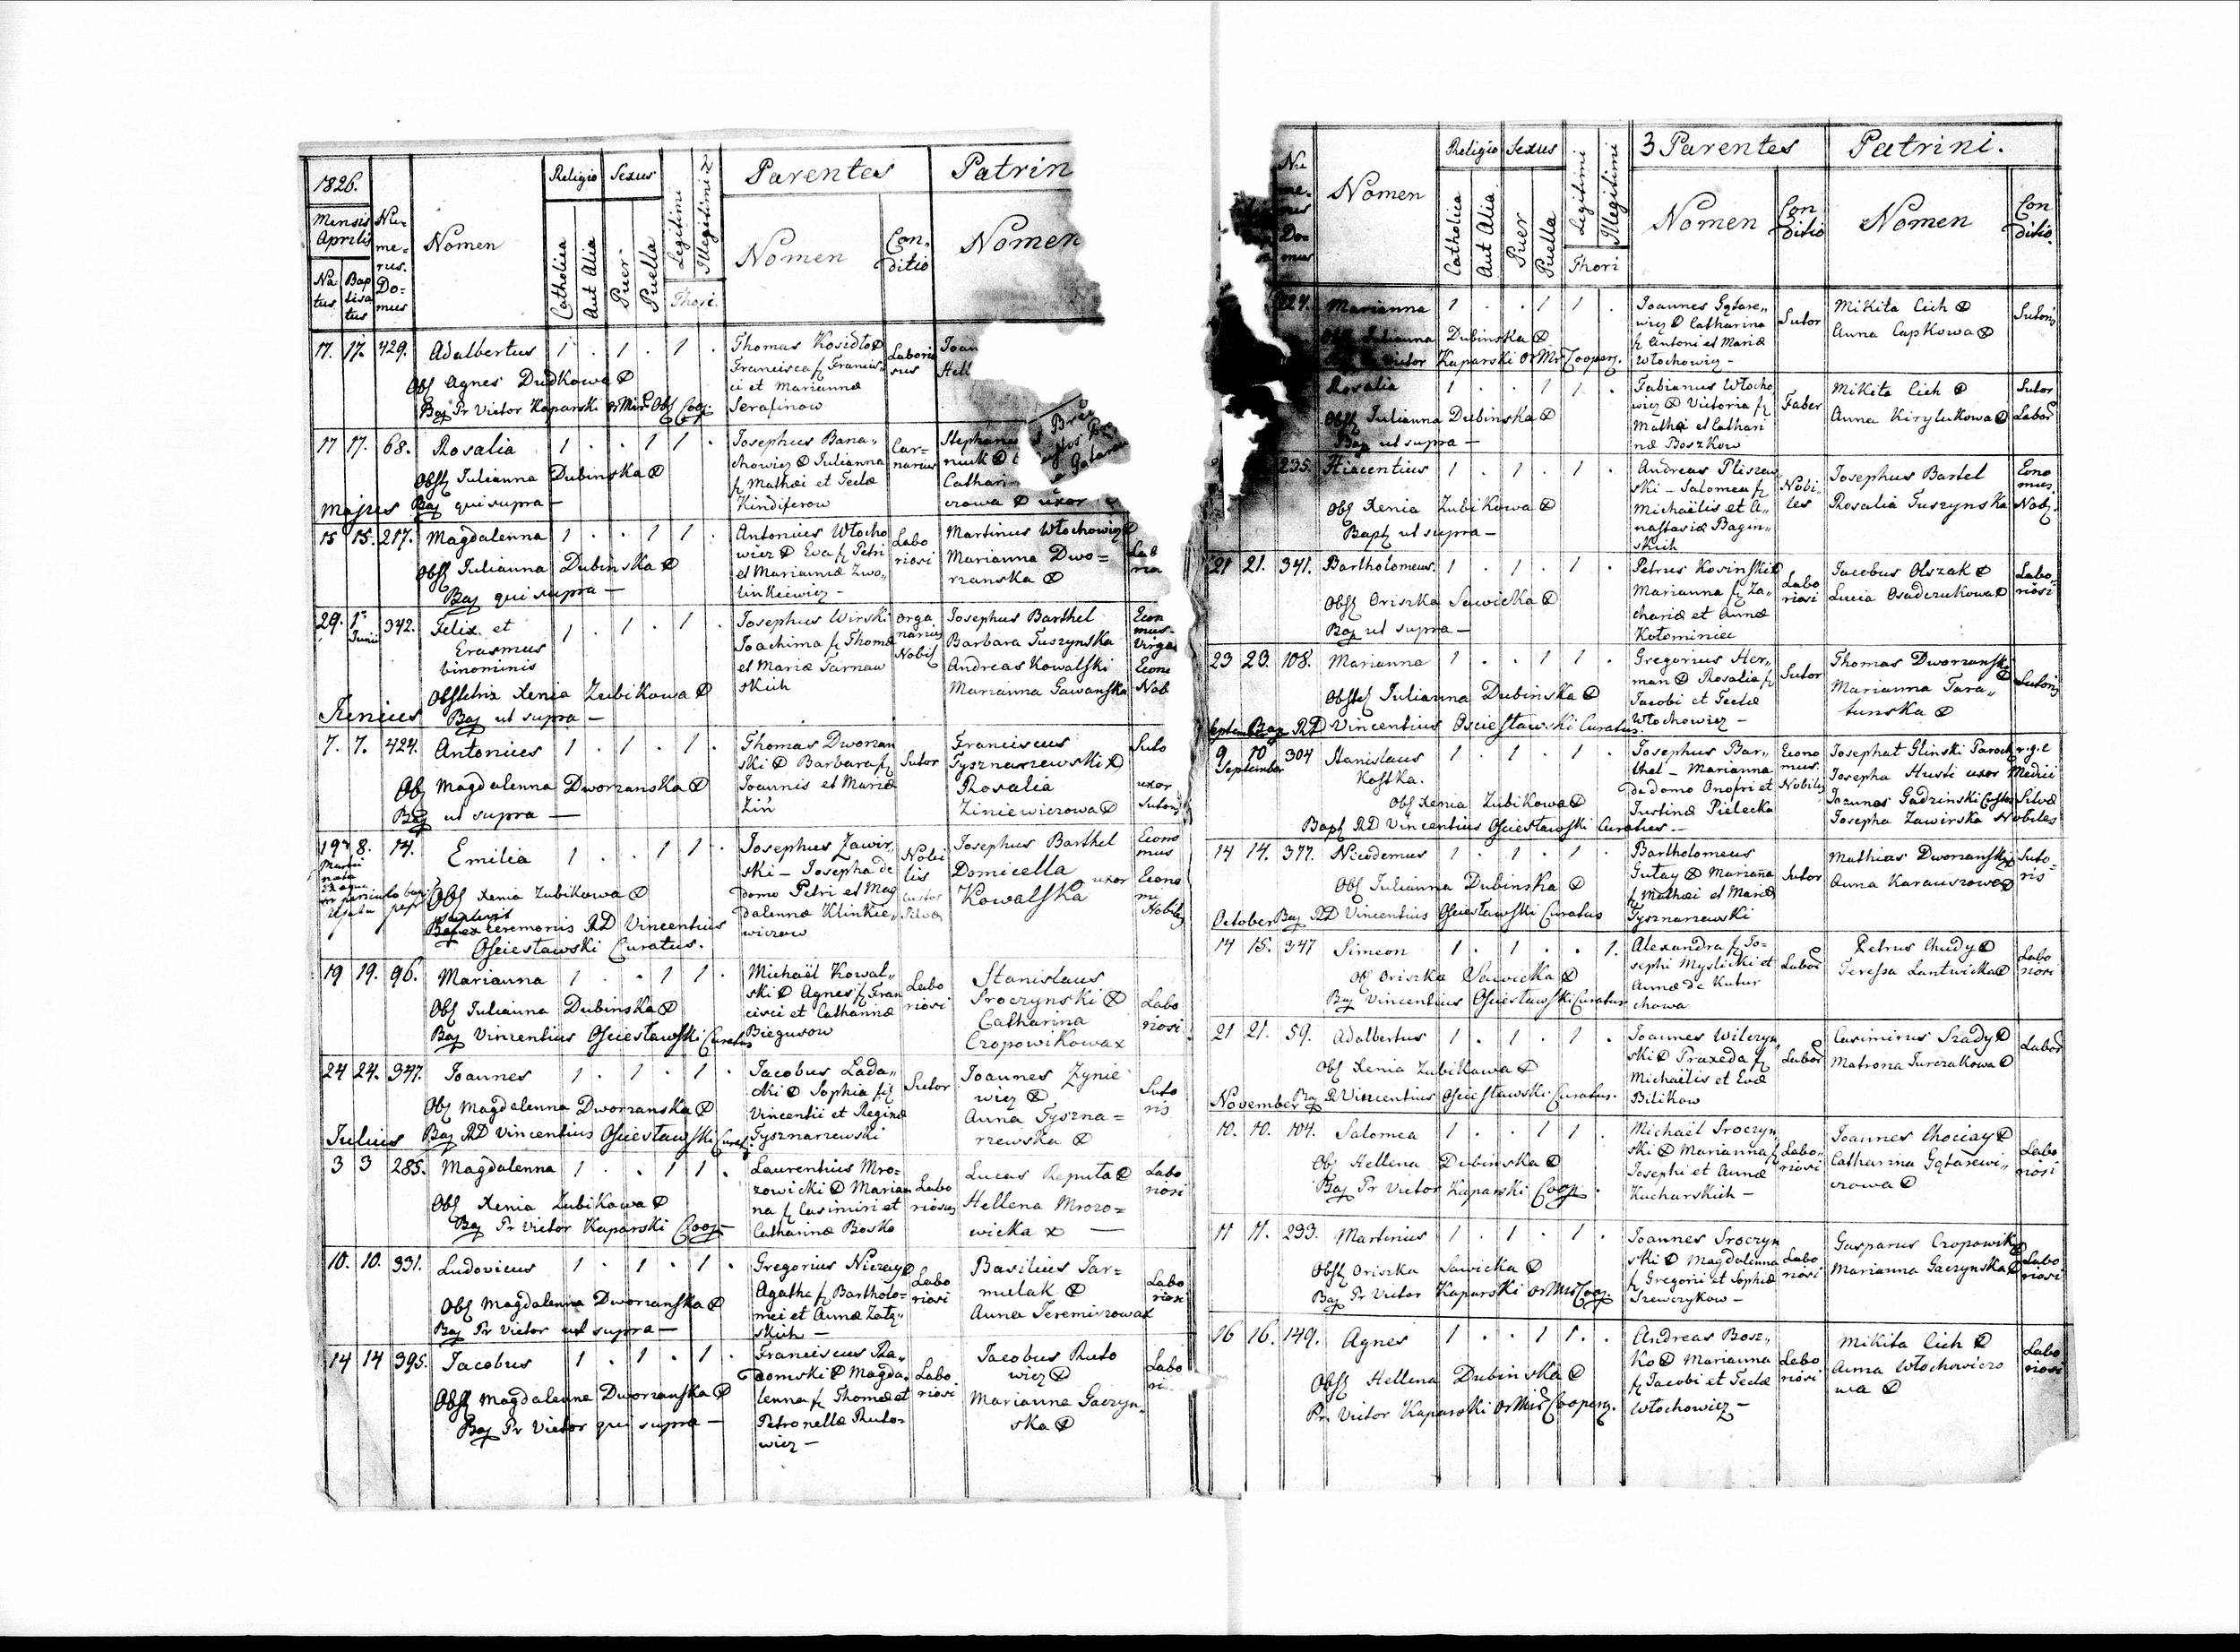 1826.
Mensis
Aprilis
Na
tus
Bap
tisa
tus
Nu-
me-
rus.
Do-
mus
Nomen
Religio
Catholica
Aut Alia
Sexus
Puer
Puella
Legitimi
Illegitimi
Thori.
2
Parentes
Nomen
Con-
ditio
Patrin
Nomen
17. 17. 429. Adalbertus 1 . 1 . 1 .
Obs Agnes Dudkowa
Bap Pr Victor Kaparski
Thomas Kosidło
Francisca f Francis-
ci et Marianna
Serafinow
Laborio
sus
Joan
Hell
17 17. 68. Rosalia 1 . . 1 1 .
Obst Julianna Dubinska
Bap qui supra —
Josephus Bana„
chowicz Julianna
f Mathæi et Teclæ
Kindiferow
Car=
narius
Stephanus
niuk
Cathari
crowa uxor
Majus
15 15. 217. Magdalenna 1 . . 1 1 .
Obst Julianna Dubinska
Bap qui supra —
Antonius Włocho
wicz Eva f Petri
et Mariannæ Zwo„
linkiewicz -
Labo
riosi
Martinus Włochowicz
Marianna Dwo=
rzanska
29. 1 Junii 342. Felix et
Erasmus
binominis
1 . 1 . 1 .
Obstetrix Xenia Zubikowa
Bap ut supra —
Josephus Wirski
Joachima f Thomæ
et Mariæ Tarnaw
skich
Orga
narius
Nobil
Josephus Barthel
Barbara Tuszynska
Andreas Kowalski
Marianna Gawanska
Econ
mus-
Virgo
Econo
Nob
Junius
7. 7. 424. Antonius 1 . 1 . 1 .
Ob Magdalenna Dworzanska
Bap ut supra —
Thomas Dworzan
ski Barbara f
Joannis et Mariæ
Ziń
Sutor
Franciscus
Tysznarzewski
Rosalia
Ziniewiczowa
Suto
uxor
Sutoris
19 8. 14. Emilia 1 . . 1 1 .
Martii
nata
Obs Xenia Zubikowa
ceremoniis RD Vincentius
Ościesławski Curatus.
Josephus Zawir„
ski — Josepha de
domo Petri et Mag
dalennæ Klinkie„
wiczow
Nobi
lis
Custos
Silvæ
Josephus Barthel
Domicella
Kowalska uxor
Econo
mus
Econo
mi
Nobiles
19 19. 96. Marianna 1 . . 1 1 .
Obs Julianna Dubinska
Bap Vincentius Ościesławski Curatus
Michaël Kowal„
ski Agnes f Fran
cisci et Catharinæ
Biegusow
Labo
riosi
Stanislaus
Sroczynski
Catharina
Cropowikowa
Labo
riosi
24 24. 347. Joannes 1 . 1 . 1 .
Obs Magdalenna Dworzanska
Bap RD Vincentius Ościesławski Curat
Jacobus Łada„
cki Sophia fil
Vincentii et Reginæ
Tysznarzewski
Sutor
Joannes Zynie
wicz
Anna Tyszna=
rzewska
Suto
ris
Julius
3 3 285. Magdalenna 1 . . 1 1 .
Obs Xenia Zubikowa
Bap Pr Victor Kaparski Coop—
Laurentius Mro=
zowicki Marian
na f Casimiri et
Catharinæ Bosko
Labo
riosus
Lucas Reputa
Hellena Mrozo=
wicka —
Labo
riosi
10. 10. 331. Ludovicus 1 . 1 . 1 .
Obs Magdalenna Dworzanska
Bap Pr Victor ut supra —
Gregorius Niczay
Agatha f Bartholo=
mei et Annæ Załę„
skich —
Labo
riosi
Basilius Jar=
mulak
Anna Jeremiszowa
Labo
riosi
14 14 395. Jacobus 1 . 1 . 1 .
Obst Magdalenna Dworzanska
Bap Pr Victor qui supra —
Franciscus Ra„
domski Magda„
lenna f Thomæ et
Petronellæ Ruto-
wicz —
Labo
riosi
Jacobus Ruto
wicz
Marianna Gaczyn„
ska
Labo
ri
Nu
me-
rus
Do-
mus
Nomen
Religio
Catholica
Aut Alia
Sexus
Puer
Puella
Legitimi
Illegitimi
Thori
3 Parentes
Nomen
Con
ditio
Patrini.
Nomen
Con
ditio.
227. Marianna 1 . . 1 1 .
Obst Julianna Dubinska
Victor Kaparski Coopera.
Joannes Gątare„
wicz Catharina
f Antoni et Mariæ
Włochowicz —
Sutor
Mikita Cich
Anna Capkowa
Sutoris
Rosalia 1 . . 1 1 .
Obst Julianna Dubinska
Bap ut supra —
Fabianus Włocho
wicz Victoria f
Mathæi et Cathari
næ Boszkow
Faber
Mikita Cich
Anna Kirylukowa
Sutor
Labor
235. Hiacentius 1 . 1 . 1 .
Obs Xenia Zubikowa
Bapt ut supra —
Andreas Pliszew
ski — Salomea f
Michaëlis et A„
nastasiæ Bagin„
skich
Nobi„
les
Josephus Bartel
Rosalia Tuszynska
Econo
mus.
Nob.
21 21. 341. Bartholomeus. 1 . 1 . 1 .
Obst Oriszka Sawicka
Bap ut supra —
Petrus Kosinski
Marianna f Za„
chariæ et Annæ
Kotominiec
Labo
riosi
Jacobus Olszak
Lucia Osadczukowa
Labo-
riosi
23 23. 108. Marianna 1 . . 1 1 .
Obstet Julianna Dubinska
Bap RD Vincentius Ościesławski Curatus.
Gregorius Her„
man Rosalia f
Jacobi et Teclæ
Włochowicz —
Sutor
Thomas Dworzanski
Marianna Tara„
tunska
Sutoris
September
9 10 304 Stanislaus
September
Kostka.
1 . 1 . 1 .
Obs Xenia Zubikowa
Bapt RD Vincentius Ościesławski Curatus. —
Josephus Bar„
thel — Marianna
de domo Onofri et
Justinæ Pielecka
Econo
mus.
Nobilis
Josephat Glinski Paroch r.g.c
Josepha Husti uxor Medici
Joannes Gadzinski Custos Silvæ
Josepha Zawirska Nobiles
14 14. 377. Nicodemus 1 . 1 . 1 .
Obs Julianna Dubinska
Bap RD Vincentius Ościesławski Curatus
Bartholomeus
Gutay Marianna
f Mathæi et Mariæ
Tysznarzewski
Sutor
Mathias Dworzanski
Anna Karauszowa
Suto-
ris
October
14 15. 347 Simeon 1 . 1 . . 1.
Obs Oriszka Sawicka
Bap Vincentius Ościesławski Curatus
Alexandra f Jo=
sephi Myslicki et
Annæ de Kutur
chowa
Labor
Petrus Chudy
Teressa Lantwicka
Labo
riosi
21 21. 59. Adalbertus 1 . 1 . 1 .
Obs Xenia Zubikawa
Bap R Vincentius Ościesławski Curatus.
Joannes Wilczyn
ski Praxeda f
Michaëlis et Evæ
Bilikow
Labor
Casimirus Szady
Matrona Jurczakowa
Labor
November
10. 10. 104. Salomea 1 . . 1 1 .
Obs Hellena Dubinska
Bap Pr Victor Kaparski Coop.
Michaël Sroczyn
ski Marianna f
Josephi et Annæ
Kucharskich —
Labo„
riosi
Joannes Chociay
Catharina Gątarewi„
czowa
Labo
riosi
11 11. 293. Martinus 1 . 1 . 1 .
Obst Oriszka Sawicka
Bap Pr Victor Kaparski Coop.
Joannes Sroczyn
ski Magdalenna
f Gregorii et Sophiæ
Szewczykow —
Labo
riosi
Gasparus Cropowik
Marianna Gaczynska
Labo
riosi
16 16. 149. Agnes 1 . . 1 1 .
Obst Hellena Dubinska
Pr Victor Kaparski Coopera.
Andreas Bosz„
ko Marianna
f Jacobi et Teclæ
Włochowicz —
Labo
riosi
Mikita Cich
Anna Włochowiczo
wa
Labo
riosi